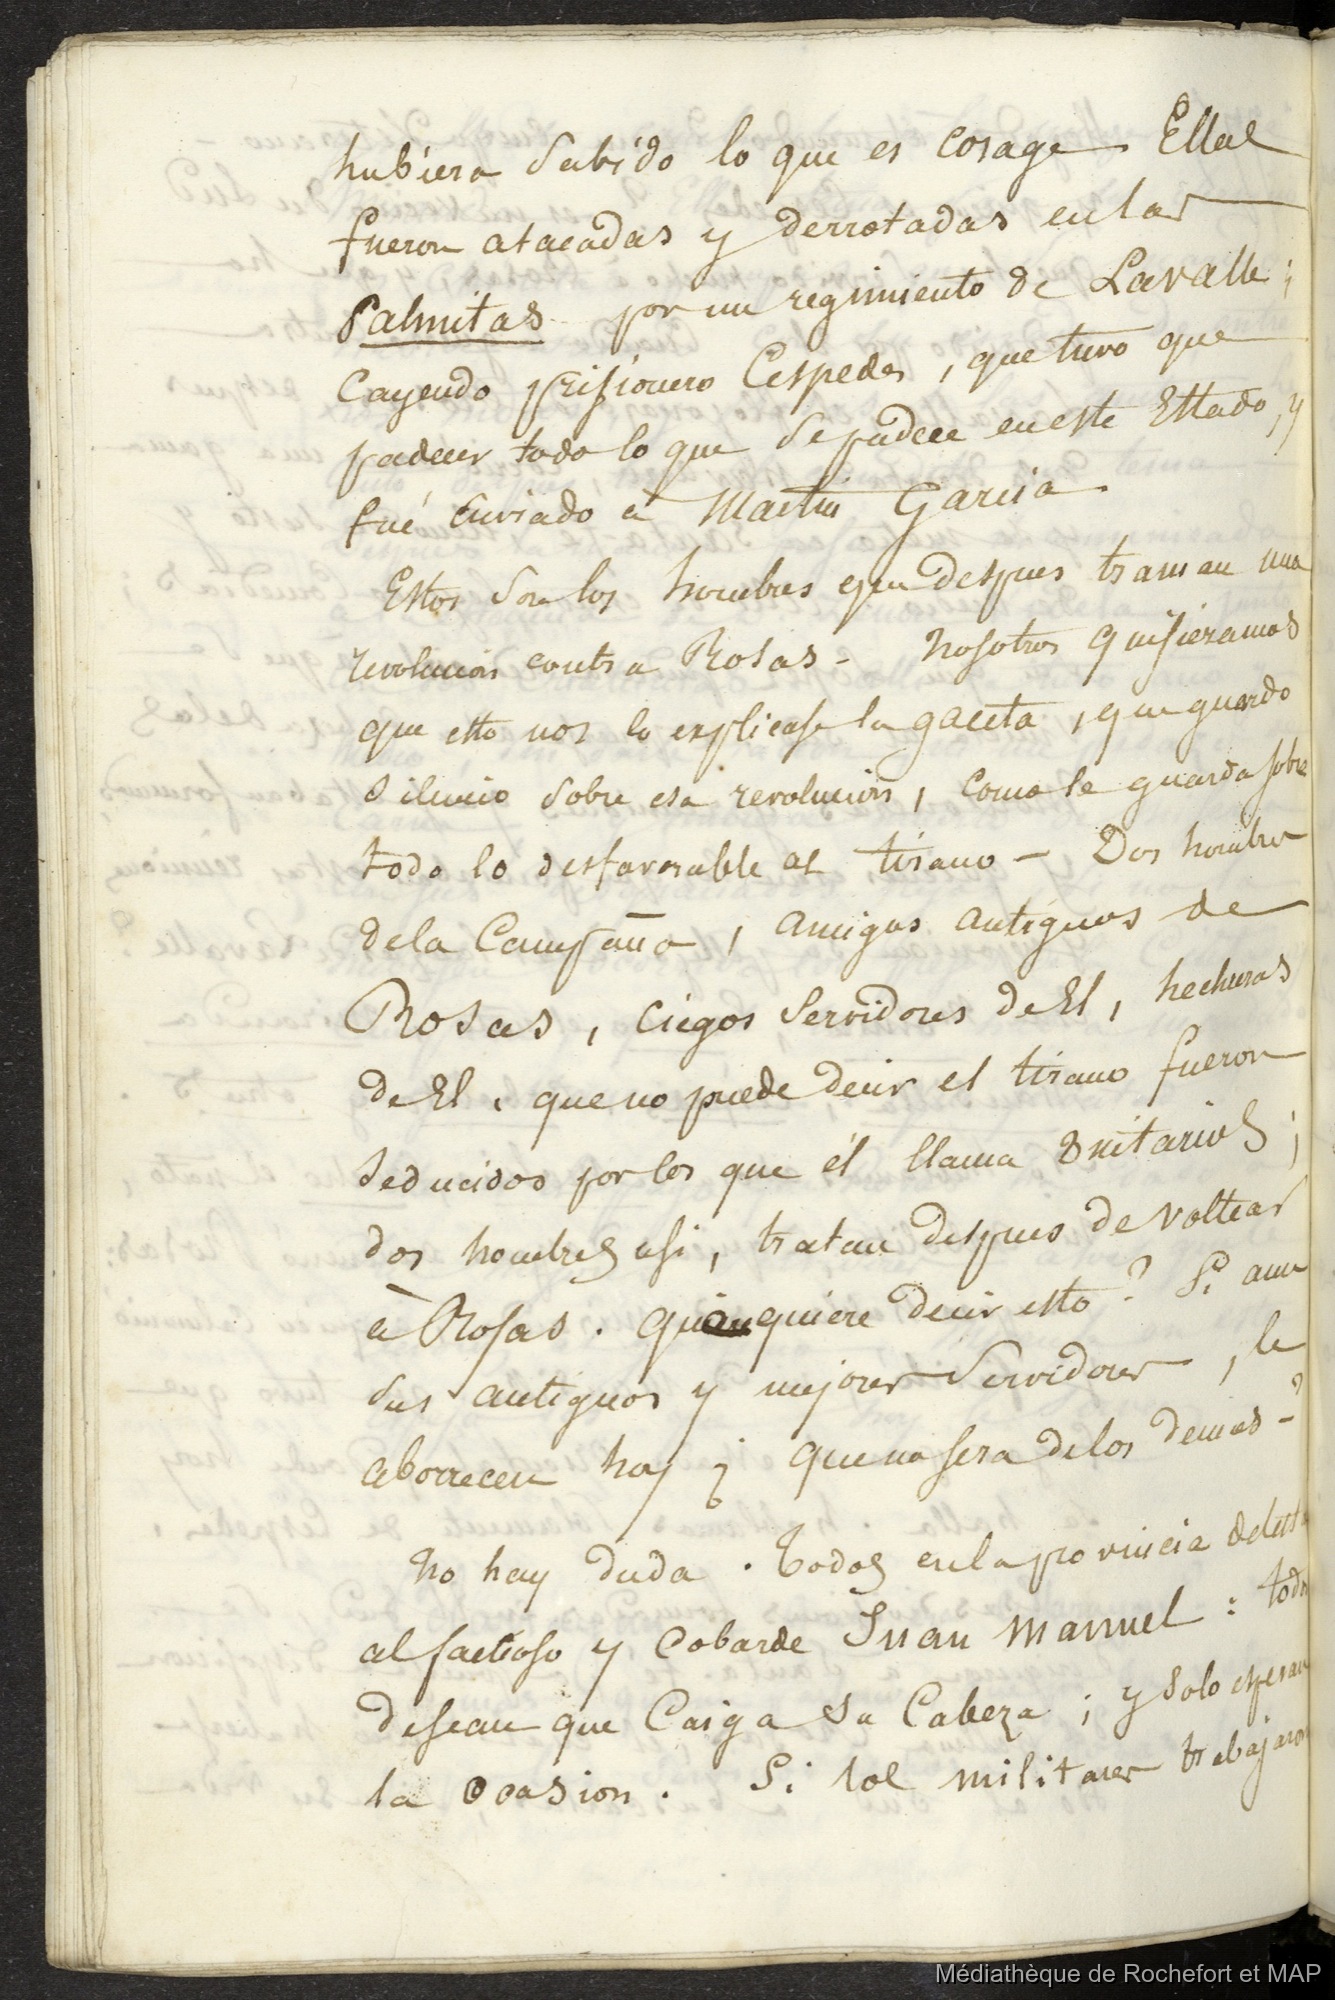 hubiera Sabido lo que es corage. Ellas
fueron atacadas y derrotadas en las
Palmitas por un regimiento de Lavalle;
Cayendo prisionero Cespedes, que tuvo que
padecer todo lo que Se padece en este Estado, y
fué enviado a Martin Garcia.
Estos Son los hombres que despues traman una
revolucion contra Rosas - Nosotros quisieramos
que esto nos lo explicase la gaceta, que guardo
Silencio Sobre esa revolucion, como le guarda sobre
todo lo desfavorable al tirano - Dos hombres
de la Campaña, amigos antiguos de
Rosas, ciegos Servidores de El, hechuras
de El, que no puede decir el tirano fueron
Seducidos por los que él llama Unitarios;
dos hombres asi, tratan despues de voltear
à Rosas. Que quiere decir esto? Si aun
Sus antiguos y mejores Servidores, le
aborrecen hoy ¿ que no sera de los demas - ?
No hay duda. Todos en la provincia detestan
al factioso y cobarde Juan Manuel: todos
desean que Caiga Su Cabeza; y Solo esperan
la Ocasion. Si los militares trabajaron
Médiathèque de Rochefort et MAP